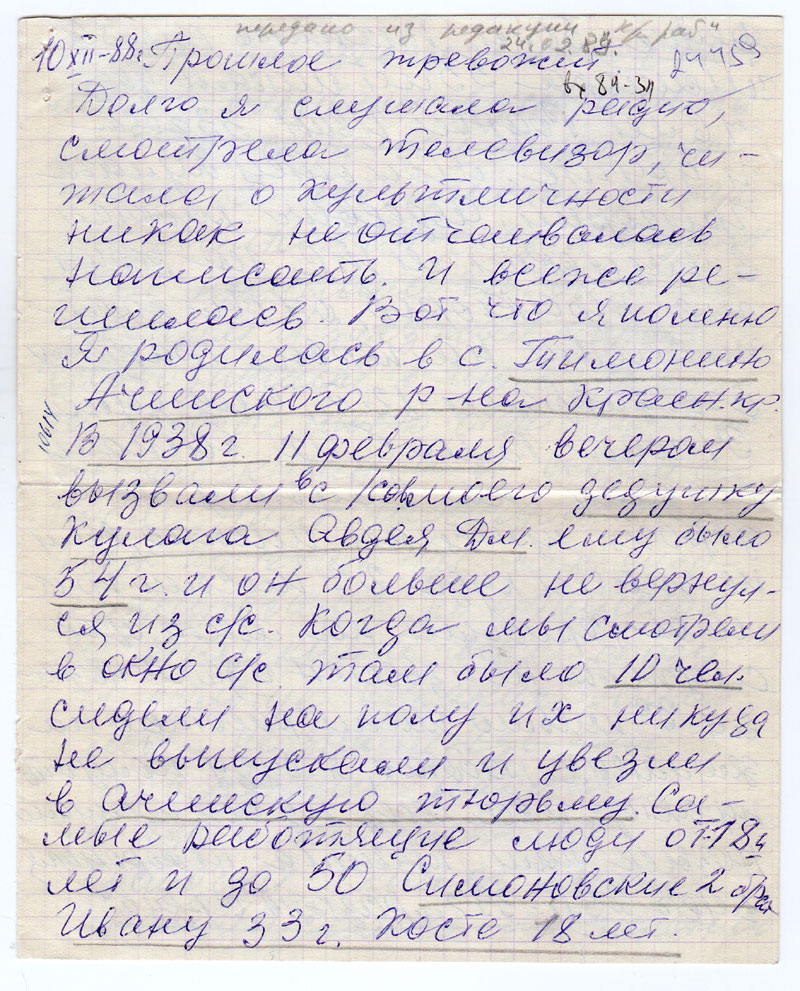 передано из редакции "Кр. раб"
24.02.89.
10 XII-88г. Прошлое тревожит
24459
вх 84-34
Долго я слушала радио,
смотрела телевизор, чи-
тала о культличности
никак не отчаивалась
написать. И всеже ре-
шилась. Вот что я помню
Я родилась в с. Тимонино
Ачинского р-на Краснкр.
В 1938г. 11 февраля вечером
вызвали в с/сов. моего дедушку
Кулага Авдея Дм ему было
54 г. и он больше не вернул-
ся из с/с. Когда мы смотрели
в окно с/с там было 10 чел.
сидели на полу их никуда
не выпускали и увезли
в ачинскую тюрьму. Са-
мые работящие люди от 18и
лет и до 50 Симоновские 2 брат
Ивану 33 г. Косте 18 лет.